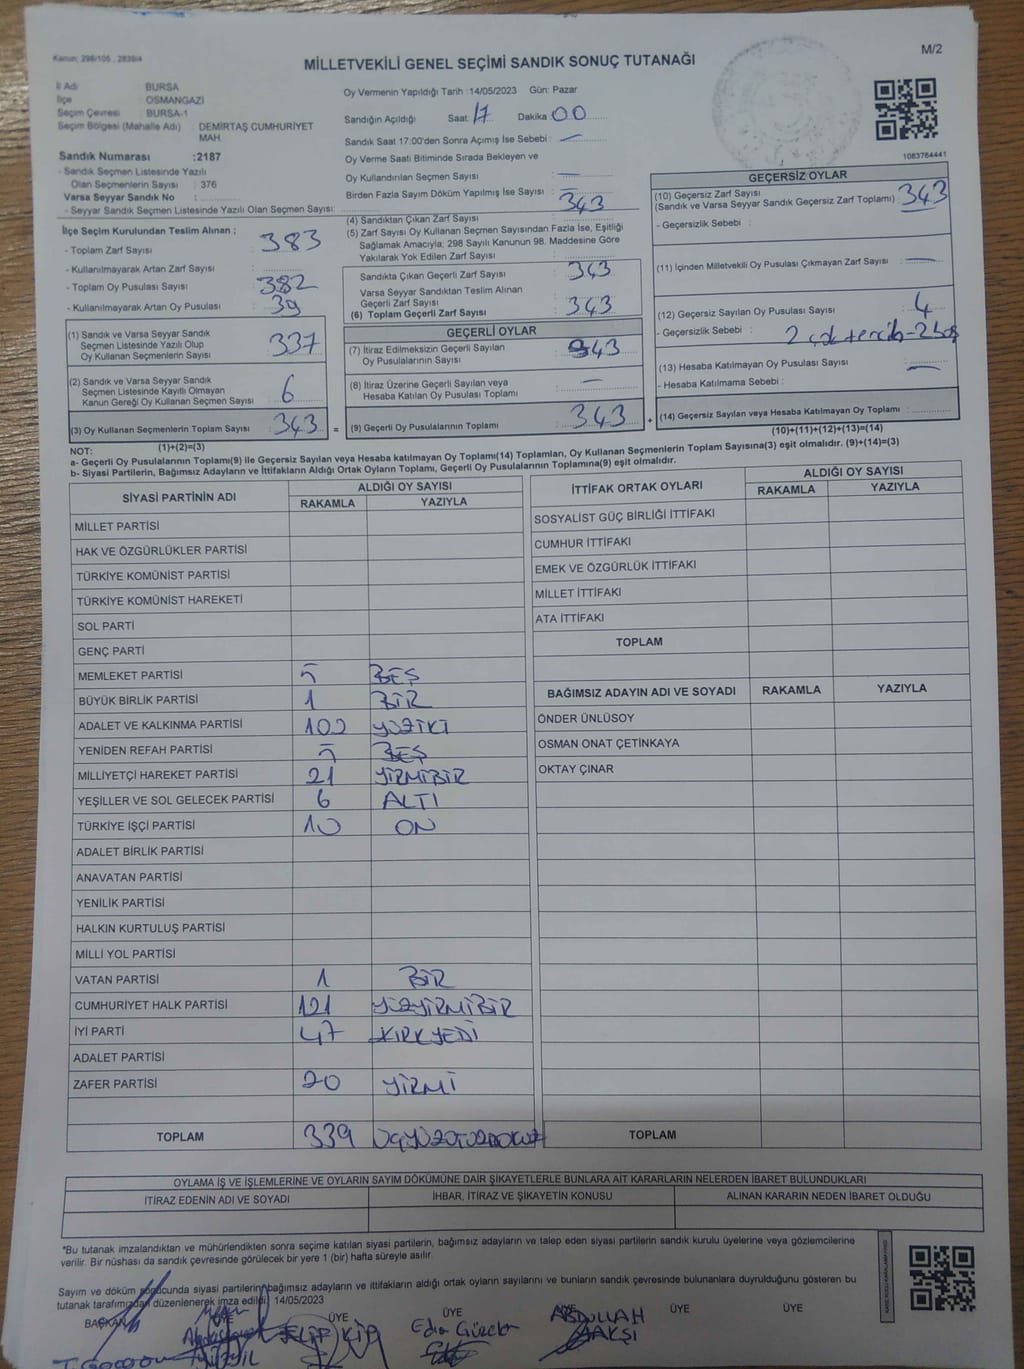 Kanun: 298/105, 2839/4
M/2
MİLLETVEKİLİ GENEL SEÇİMİ SANDIK SONUÇ TUTANAĞI
İl Adı BURSA
İlçe OSMANGAZİ
Seçim Çevresi BURSA-1
Seçim Bölgesi (Mahalle Adı) : DEMİRTAŞ CUMHURİYET MAH.
Sandık Numarası :2187
- Sandık Seçmen Listesinde Yazılı
Olan Seçmenlerin Sayısı : 376
Varsa Seyyar Sandık No :
- Seyyar Sandık Seçmen Listesinde Yazılı Olan Seçmen Sayısı:
Oy Vermenin Yapıldığı Tarih :14/05/2023 Gün: Pazar
Sandığın Açıldığı Saat: 17 Dakika 00
Sandık Saat 17:00'den Sonra Açımış İse Sebebi : —
Oy Verme Saati Bitiminde Sırada Bekleyen ve
Oy Kullandırılan Seçmen Sayısı : —
Birden Fazla Sayım Döküm Yapılmış İse Sayısı : —
1083764441
İlçe Seçim Kurulundan Teslim Alınan ;
- Toplam Zarf Sayısı : 383
- Kullanılmayarak Artan Zarf Sayısı :
- Toplam Oy Pusulası Sayısı : 382
- Kullanılmayarak Artan Oy Pusulası : 39
(1) Sandık ve Varsa Seyyar Sandık
Seçmen Listesinde Yazılı Olup
Oy Kullanan Seçmenlerin Sayısı : 337
(2) Sandık ve Varsa Seyyar Sandık
Seçmen Listesinde Kayıtlı Olmayan
Kanun Gereği Oy Kullanan Seçmen Sayısı : 6
(3) Oy Kullanan Seçmenlerin Toplam Sayısı : 343
(1)+(2)=(3)
(4) Sandıktan Çıkan Zarf Sayısı : 343
(5) Zarf Sayısı Oy Kullanan Seçmen Sayısından Fazla İse, Eşitliği
Sağlamak Amacıyla; 298 Sayılı Kanunun 98. Maddesine Göre
Yakılarak Yok Edilen Zarf Sayısı :
Sandıkta Çıkan Geçerli Zarf Sayısı : 343
Varsa Seyyar Sandıktan Teslim Alınan
Geçerli Zarf Sayısı :
(6) Toplam Geçerli Zarf Sayısı : 343
GEÇERLİ OYLAR
(7) İtiraz Edilmeksizin Geçerli Sayılan
Oy Pusulalarının Sayısı : 343
(8) İtiraz Üzerine Geçerli Sayılan veya
Hesaba Katılan Oy Pusulası Toplamı : —
= (9) Geçerli Oy Pusulalarının Toplamı : 343 +
GEÇERSİZ OYLAR
(10) Geçersiz Zarf Sayısı
(Sandık ve Varsa Seyyar Sandık Geçersiz Zarf Toplamı) : 343
- Geçersizlik Sebebi :
(11) İçinden Milletvekili Oy Pusulası Çıkmayan Zarf Sayısı : —
(12) Geçersiz Sayılan Oy Pusulası Sayısı : 4
- Geçersizlik Sebebi : 2 çok tercih - 2 boş
(13) Hesaba Katılmayan Oy Pusulası Sayısı : —
- Hesaba Katılmama Sebebi :
(14) Geçersiz Sayılan veya Hesaba Katılmayan Oy Toplamı :
(10)+(11)+(12)+(13)=(14)
NOT:
a- Geçerli Oy Pusulalarının Toplamı(9) ile Geçersiz Sayılan veya Hesaba Katılmayan Oy Toplamı(14) Toplamları, Oy Kullanan Seçmenlerin Toplam Sayısına(3) eşit olmalıdır. (9)+(14)=(3)
b- Siyasi Partilerin, Bağımsız Adayların ve İttifakların Aldığı Ortak Oyların Toplamı, Geçerli Oy Pusulalarının Toplamına(9) eşit olmalıdır.
SİYASİ PARTİNİN ADI ALDIĞI OY SAYISI
RAKAMLA YAZIYLA
MİLLET PARTİSİ
HAK VE ÖZGÜRLÜKLER PARTİSİ
TÜRKİYE KOMÜNİST PARTİSİ
TÜRKİYE KOMÜNİST HAREKETİ
SOL PARTİ
GENÇ PARTİ
MEMLEKET PARTİSİ 5 BEŞ
BÜYÜK BİRLİK PARTİSİ 1 BİR
ADALET VE KALKINMA PARTİSİ 102 YÜZİKİ
YENİDEN REFAH PARTİSİ 5 BEŞ
MİLLİYETÇİ HAREKET PARTİSİ 21 YİRMİBİR
YEŞİLLER VE SOL GELECEK PARTİSİ 6 ALTI
TÜRKİYE İŞÇİ PARTİSİ 10 ON
ADALET BİRLİK PARTİSİ
ANAVATAN PARTİSİ
YENİLİK PARTİSİ
HALKIN KURTULUŞ PARTİSİ
MİLLİ YOL PARTİSİ
VATAN PARTİSİ 1 BİR
CUMHURİYET HALK PARTİSİ 121 YÜZYİRMİBİR
İYİ PARTİ 47 KIRKYEDİ
ADALET PARTİSİ
ZAFER PARTİSİ 20 YİRMİ
TOPLAM 339 ÜÇYÜZOTUZDOKUZ
İTTİFAK ORTAK OYLARI ALDIĞI OY SAYISI
RAKAMLA YAZIYLA
SOSYALİST GÜÇ BİRLİĞİ İTTİFAKI
CUMHUR İTTİFAKI
EMEK VE ÖZGÜRLÜK İTTİFAKI
MİLLET İTTİFAKI
ATA İTTİFAKI
TOPLAM
BAĞIMSIZ ADAYIN ADI VE SOYADI RAKAMLA YAZIYLA
ÖNDER ÜNLÜSOY
OSMAN ONAT ÇETİNKAYA
OKTAY ÇINAR
TOPLAM
OYLAMA İŞ VE İŞLEMLERİNE VE OYLARIN SAYIM DÖKÜMÜNE DAİR ŞİKAYETLERLE BUNLARA AİT KARARLARIN NELERDEN İBARET BULUNDUKLARI
İTİRAZ EDENİN ADI VE SOYADI İHBAR, İTİRAZ VE ŞİKAYETİN KONUSU ALINAN KARARIN NEDEN İBARET OLDUĞU
*Bu tutanak imzalandıktan ve mühürlendikten sonra seçime katılan siyasi partilerin, bağımsız adayların ve talep eden siyasi partilerin sandık kurulu üyelerine veya gözlemcilerine
verilir. Bir nüshası da sandık çevresinde görülecek bir yere 1 (bir) hafta süreyle asılır.
Sayım ve döküm sonucunda siyasi partilerin, bağımsız adayların ve ittifakların aldığı ortak oyların sayılarını ve bunların sandık çevresinde bulunanlara duyrulduğunu gösteren bu
tutanak tarafımızdan düzenlenerek imza edildi. 14/05/2023
BAŞKAN ÜYE ÜYE ÜYE ÜYE ÜYE
ELİF Edin ABDULLAH
YAKŞI